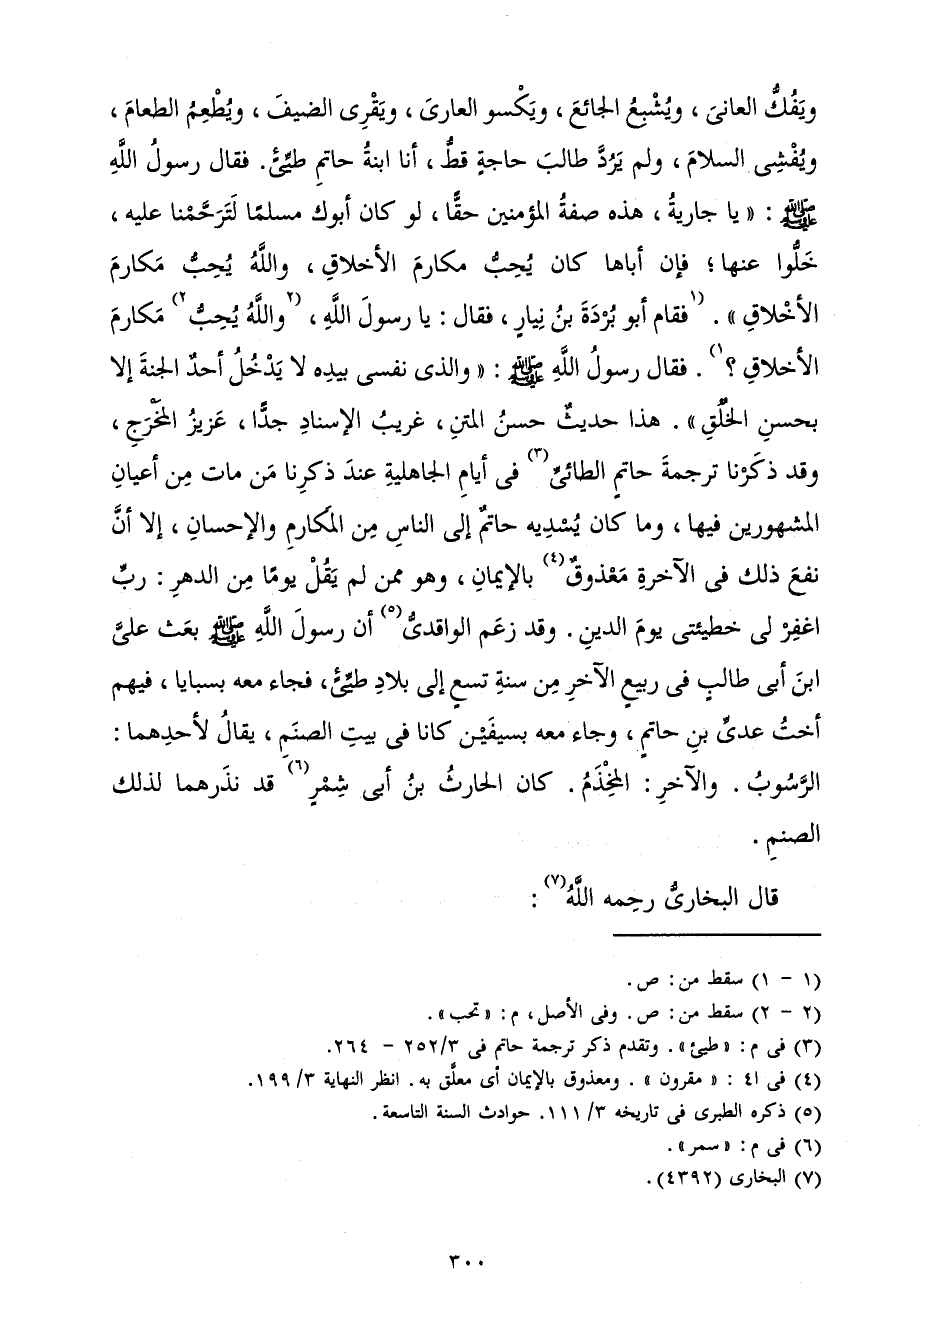 ويَفُكُّ العانىَ ، ويُشْبِعُ الجائعَ ، ويَكْسو العارىَ ، ويَقْرِى الضيفَ ، ويُطْعِمُ الطعامَ ،
ويُفْشِى السلامَ ، ولم يَرُدَّ طالبَ حاجةٍ قطُّ ، أنا ابنةُ حاتمِ طيِّئٍ . فقال رسولُ اللَّهِ
ﷺ : « يا جاريةُ ، هذه صفةُ المؤمنين حقًّا ، لو كان أبوك مسلمًا لَتَرَحَّمْنا عليه ،
خَلُّوا عنها ؛ فإن أباها كان يُحِبُّ مكارمَ الأخلاقِ ، واللَّهُ يُحِبُّ مَكارمَ
الأخْلاقِ » . (١فقام أبو بُرْدَةَ بنُ نِيارٍ ، فقال : يا رسولَ اللَّهِ ، (٢واللَّهُ يُحِبُّ٢) مَكارمَ
الأخلاقِ ؟١) . فقال رسولُ اللَّهِ ﷺ : « والذى نفسى بيدِه لا يَدْخُلُ أحدٌ الجنةَ إلا
بحسنِ الخُلُقِ » . هذا حديثٌ حسنُ المتنِ ، غريبُ الإسنادِ جدًّا ، عَزيزُ المَخْرَجِ ،
وقد ذكَرْنا ترجمةَ حاتمٍ الطائىِّ(٣) فى أيامِ الجاهليةِ عندَ ذكرِنا مَن مات مِن أعيانِ
المشهورين فيها ، وما كان يُسْدِيه حاتمٌ إلى الناسِ مِن المَكارمِ والإحسانِ ، إلا أنَّ
نفعَ ذلك فى الآخرةِ مَعْذوقٌ(٤) بالإيمانِ ، وهو ممن لم يَقُلْ يومًا مِن الدهرِ : ربِّ
اغفِرْ لى خطيئتى يومَ الدينِ . وقد زعَم الواقدىُّ(٥) أن رسولَ اللَّهِ ﷺ بعَث علىَّ
ابنَ أبى طالبٍ فى ربيعٍ الآخرِ مِن سنةِ تسعٍ إلى بلادِ طيِّئٍ ، فجاء معه بسبايا ، فيهم
أختُ عدىِّ بنِ حاتمٍ ، وجاء معه بسيفَيْن كانا فى بيتِ الصنَمِ ، يقالُ لأحدِهما :
الرَّسُوبُ . والآخرِ : المِخْذَمُ . كان الحارثُ بنُ أبى شِمْرٍ(٦) قد نذَرهما لذلك
الصنمِ .
قال البخارىُّ رحِمه اللَّهُ(٧) :
(١ - ١) سقط من : ص .
(٢ - ٢) سقط من : ص . وفى الأصل ، م : « تحب » .
(٣) فى م : « طيئ » . وتقدم ذكر ترجمة حاتم فى ٢٥٢/٣ - ٢٦٤ .
(٤) فى ٤١ : « مقرون » . ومعذوق بالإيمان أى معلَّق به . انظر النهاية ١٩٩/٣ .
(٥) ذكره الطبرى فى تاريخه ١١١/٣ . حوادث السنة التاسعة .
(٦) فى م : « سمر » .
(٧) البخارى (٤٣٩٢) .
٣٠٠